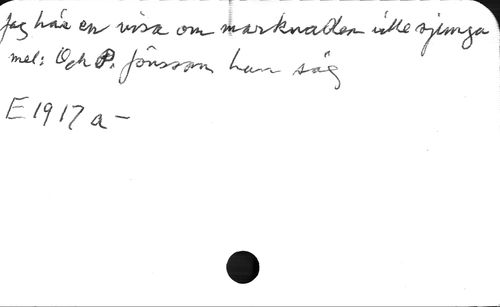 Jag här en visa om marknaden ville sjunga
mel: Och P. Jönsson han såg
E 1917 a -